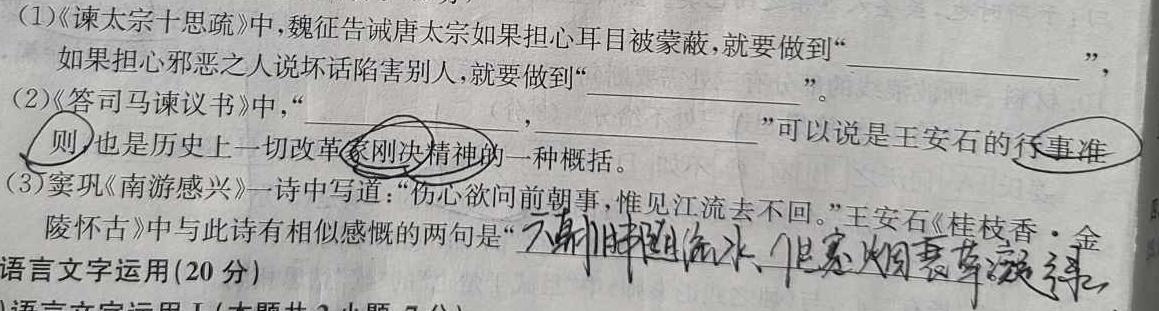 (1)《谏太宗十思疏》中,魏征告诫唐太宗如果担心耳目被蒙蔽,就要做到“
”,
如果担心邪恶之人说坏话陷害别人,就要做到“
”。
(2)《答司马谏议书》中,“
,
”可以说是王安石的行事准
则,也是历史上一切改革家刚决精神的一种概括。
(3)窦巩《南游感兴》一诗中写道:“伤心欲问前朝事,惟见江流去不回。”王安石《桂枝香·金
陵怀古》中与此诗有相似感慨的两句是“六朝旧事随流水、但寒烟衰草凝绿
语言文字运用(20分)